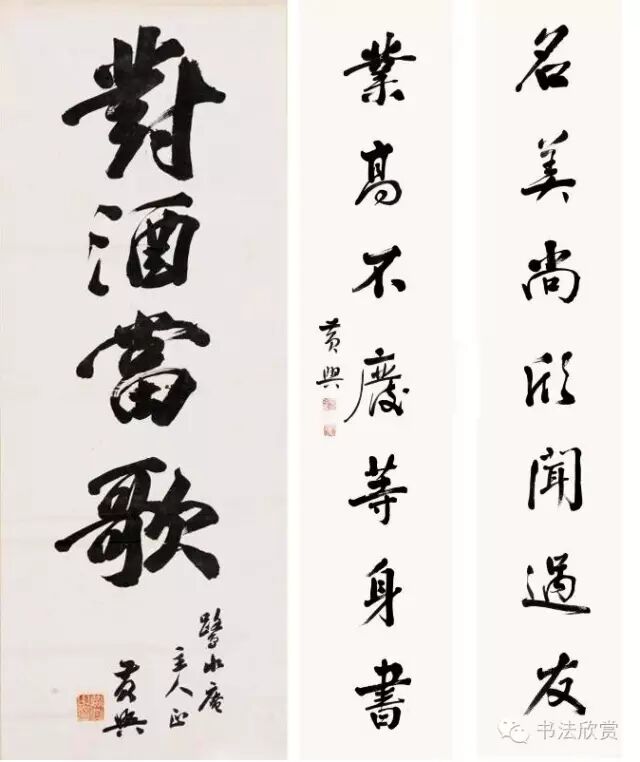 名美尚欣聞過友
業高不廢等身書
黃興
對酒當歌
主人正
黃興
书法欣赏